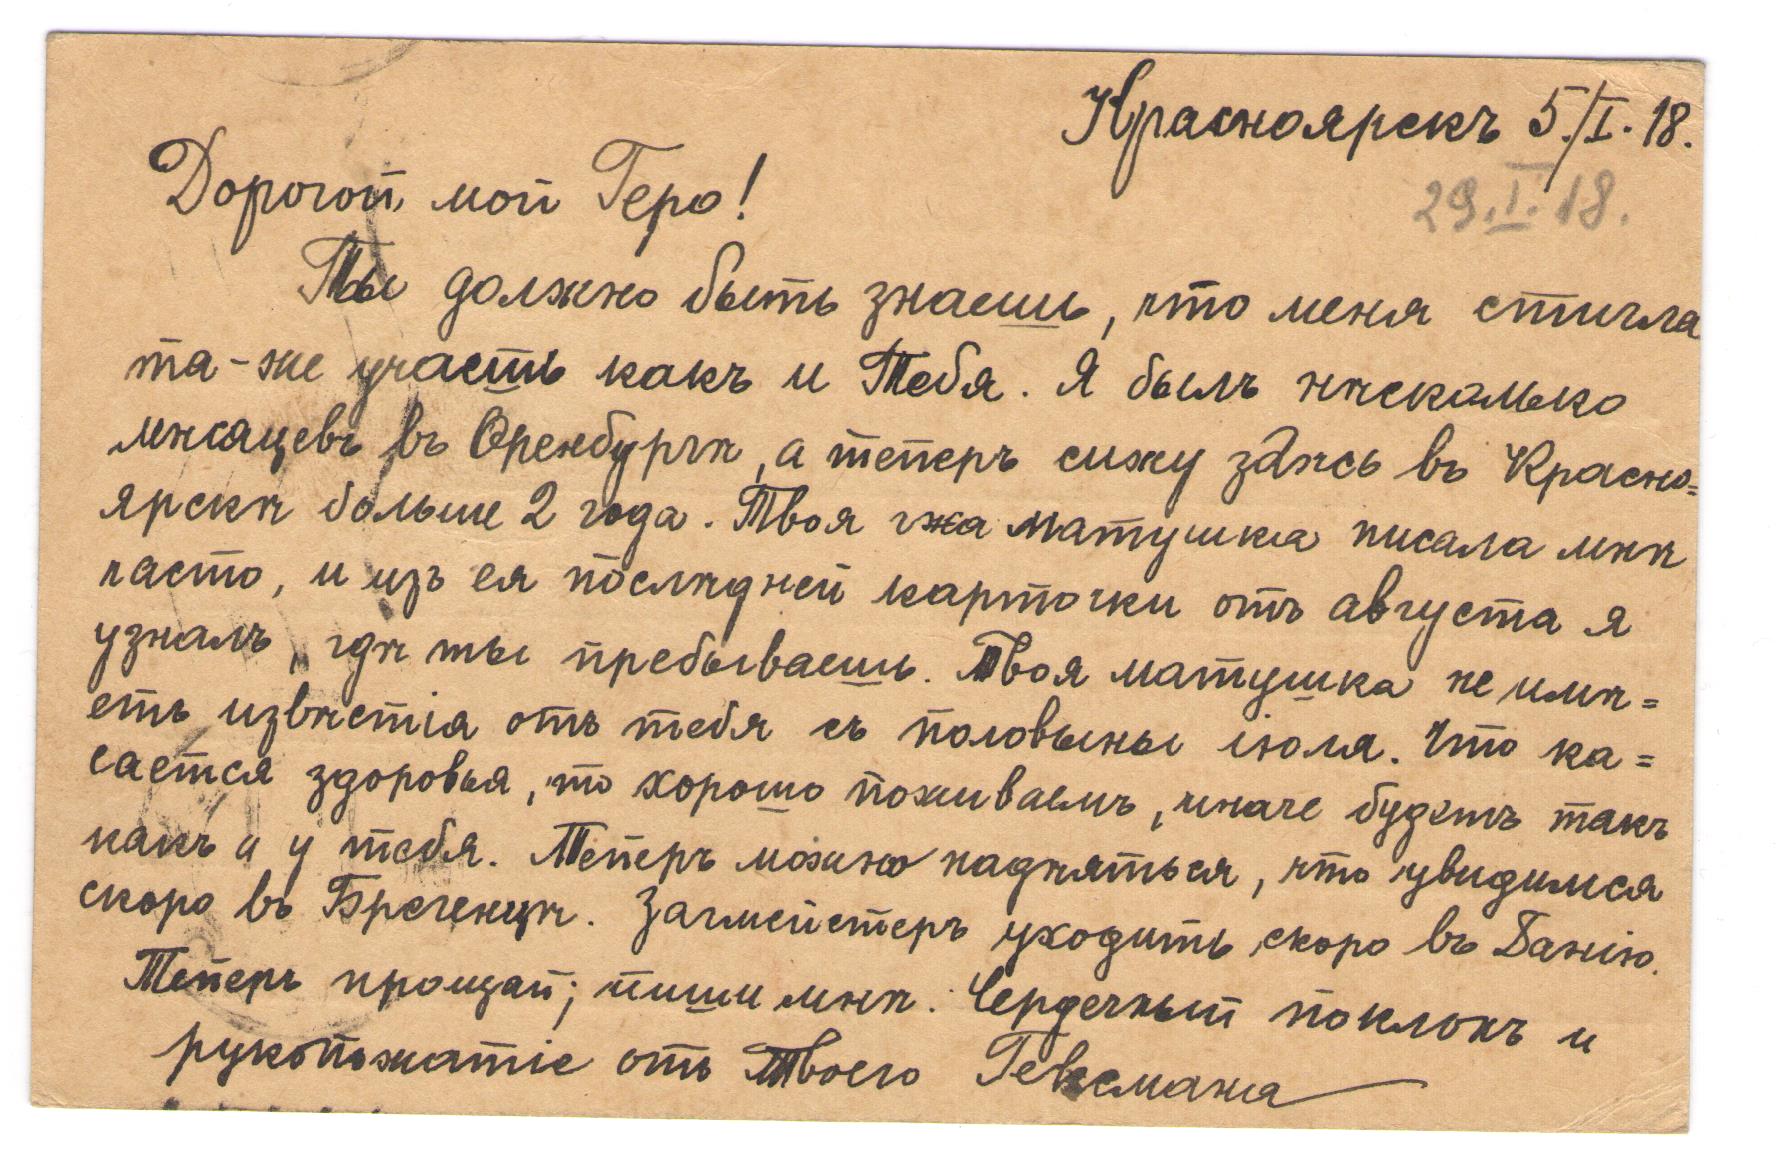 Красноярскъ 5/I. 18.
29.I.18.
Дорогой мой Геро!
Ты должно быть знаешь, что меня стигла
та-же участь какъ и Тебя. Я былъ нѣсколько
мѣсяцевъ въ Оренбургѣ, а теперъ сижу здѣсь въ Красно=
ярскѣ больше 2 года. Твоя гжа матушка писала мнѣ
часто, и изъ ея послѣдней карточки отъ августа я
узналъ, гдѣ ты пребываешь. Твоя матушка не имѣ=
етъ извѣстія отъ тебя съ половыны іюля. Что ка=
сается здоровья, то хорошо поживаемъ, иначе будетъ такъ
какъ и у тебя. Теперъ можно надѣяться, что увидимся
скоро въ Брегенцѣ. Загмейстеръ уходитъ скоро въ Данію.
Теперь прощай; пиши мнѣ. Сердечный поклонъ и
рукопожатіе отъ Твоего